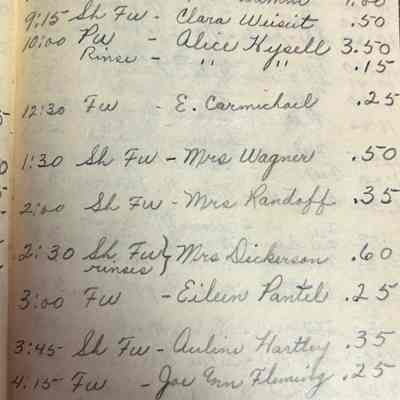 1.00
9:15 Sh Fw - Clara Weisit .50
10:00 Pw - Alice Kysell 3.50
Rinse - " " .15
12:30 Fw - E. Carmichael .25
1:30 Sh Fw - Mrs Wagner .50
2:00 Sh Fw - Mrs Randoff .35
2:30 Sh Fw } Mrs Dickerson .60
rinses
3:00 Fw - Eileen Pantel .25
3:45 Sh Fw - Auline Hartley .35
4:15 Fw - Joe Ann Fleming .25